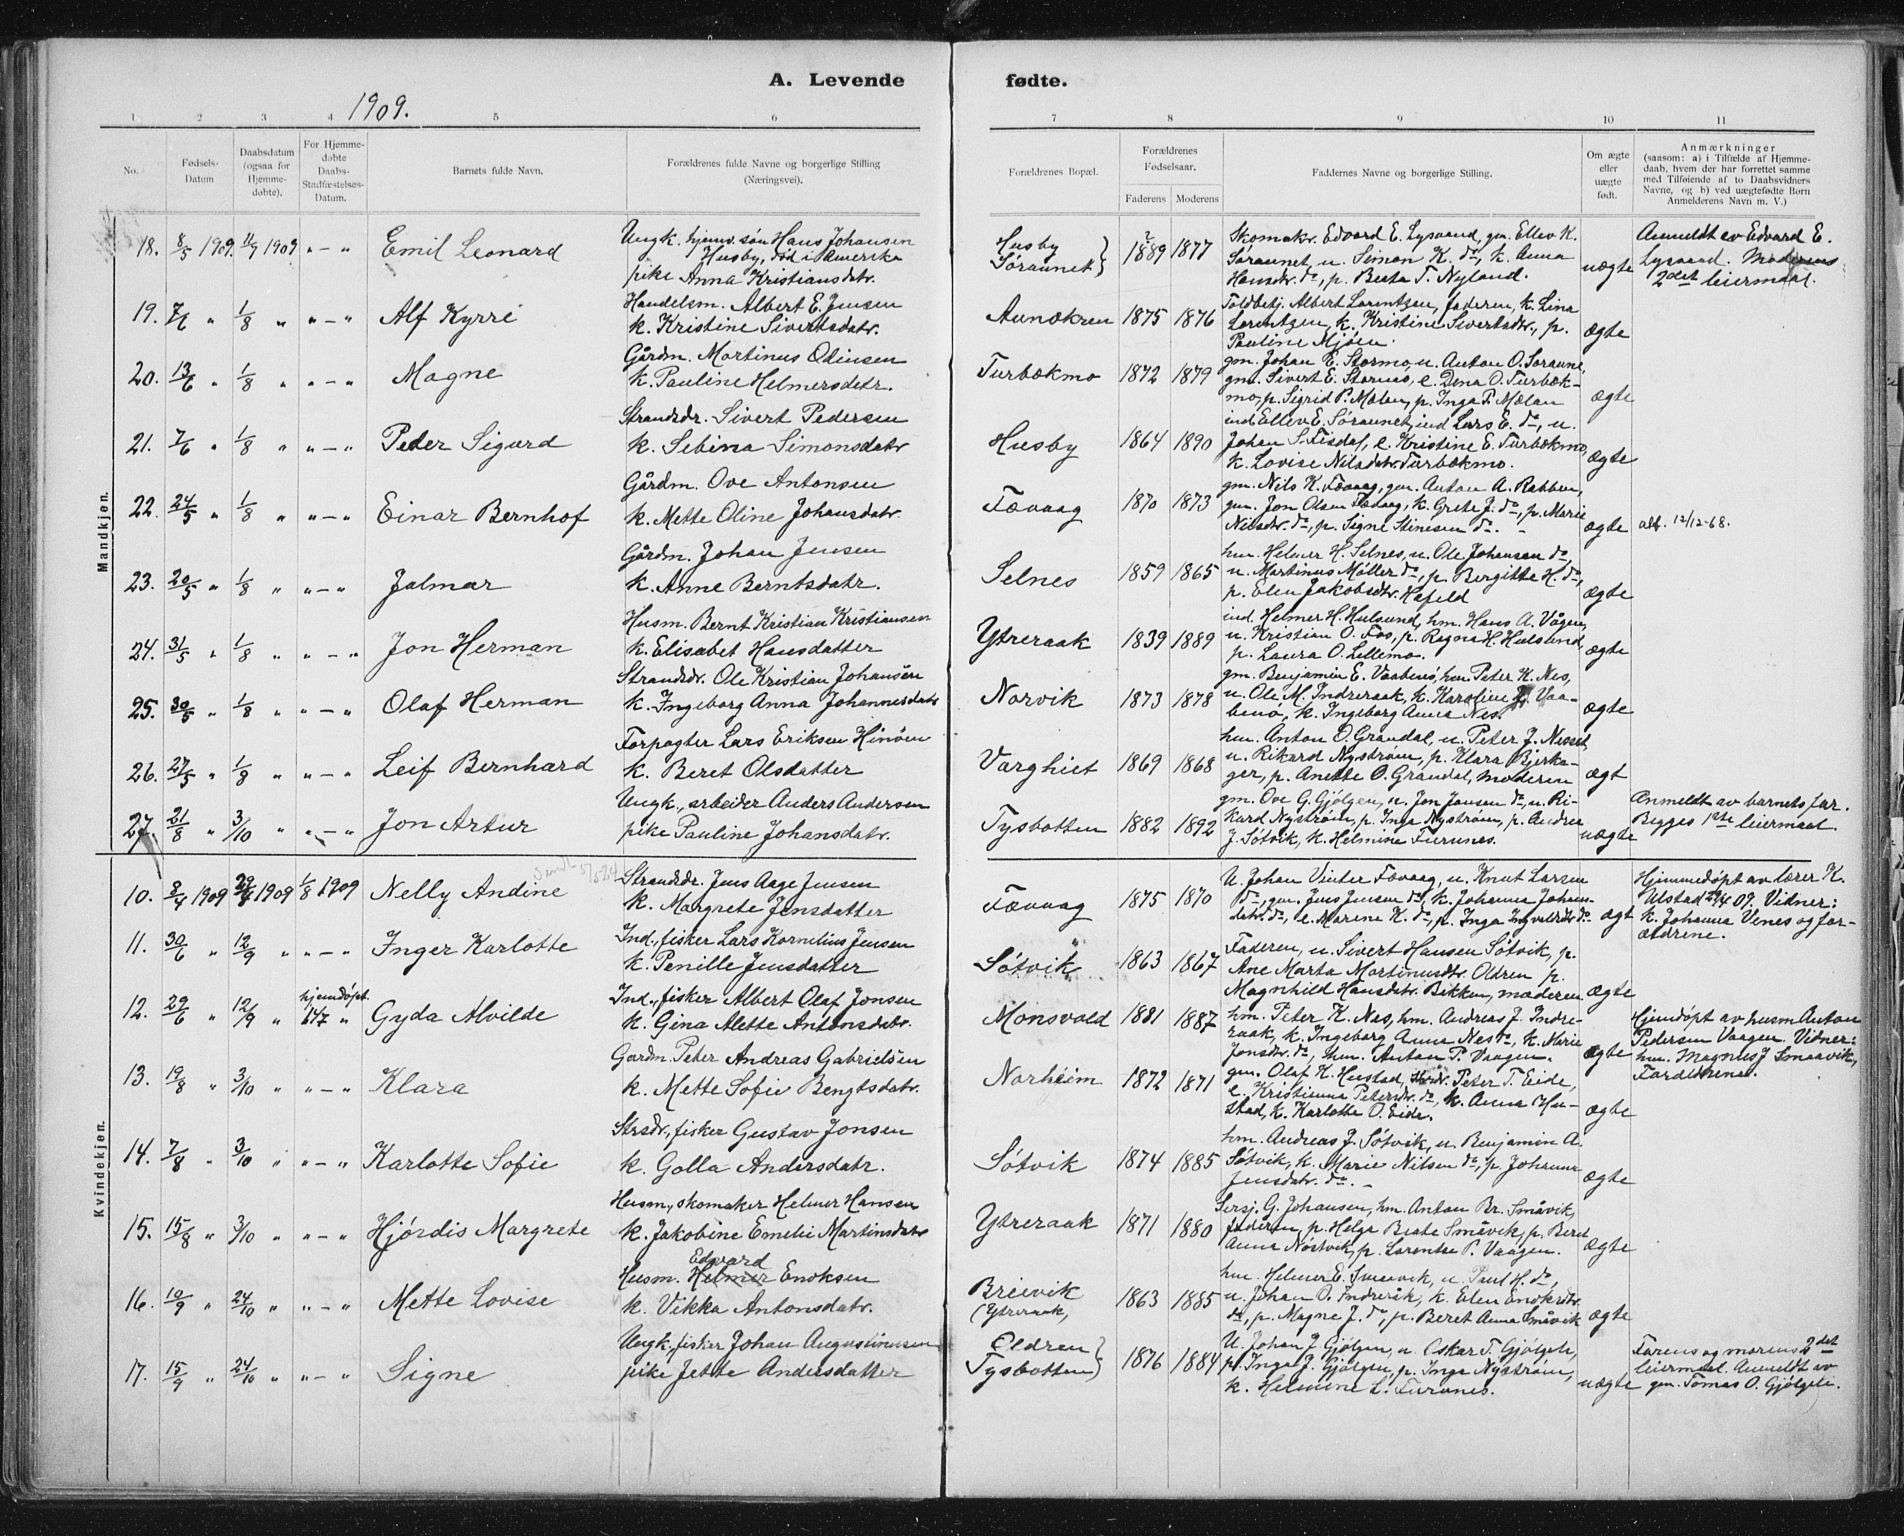 A. Levende fødte.
1909.
1 2 3 4 5 6 7 8 9 10 11
No.
Fødsels-
Datum
Daabsdatum
(ogsaa for
Hjemme-
døbte).
For Hjemme-
døbte
Daabs-
Stadfæstelses-
Datum.
Barnets fulde Navn.
Forældrenes fulde Navne og borgerlige Stilling
(Næringsvei).
Forældrenes Bopæl.
Forældrenes
Fødselsaar.
Faderens Moderens
Faddernes Navne og borgerlige Stilling.
Om ægte
eller
uægte
født.
Anmærkninger
(saasom: a) i Tilfælde af Hjemme-
daab, hvem der har forrettet samme
med Tilføiende af to Daabsvidners
Navne, og b) ved uægtefødte Børn
Anmelderens Navn m. V.)
Mandkjøn.
18. 8/5 1909. 11/7 1909 " — " Emil Leonard
Ungk. hjemv. søn Hans Johansen
Husby, død i Amerika
pike Anna Kristiansdatr.
Husby
Søraunet
1889 1877
Skomakr. Edvard E. Lysaand, gm. Ellev K.
Søraunet, u. Simon K. do, k. Anna
Hansdr. do, p. Berta T. Nyland.
uægte
Anmeldt av Edvard E.
Lysaand. Moderens
2det leiermaal.
19. 7/6 " 1/8 " " — " Alf Kyrre
Handelsm. Albert E. Jensen
k. Kristine Sivertsdatr.
Aunækren 1875 1876
Toldbetj. Albert Lorentzen, faderen, k. Lina
Lorentzen, k. Kristine Sivertsdtr., p.
Pauline Mjøen.
ægte
20. 13/6 " 1/8 " " — " Magne
Gårdm. Martinus Odinsen
k. Pauline Helmersdatr.
Turbækmo 1872 1879
gm. Johan E. Stormo, u. Anton O. Søraune,
gm. Sivert E. Stornes, e. Dena O. Turbæk-
mo, p. Sigrid P. Mælan, p. Inga P. Mælan
ægte
21. 7/6 " 1/8 " " — " Peder Sigurd
Strandsdr. Sivert Pedersen
k. Sebina Simonsdatr
Husby 1864 1890
ind Ellev E. Søraunet, ind Lars E. do, u.
Johan S. Tisdal, e. Kristine E. Turbækmo,
k. Lovise Nilsdatr. Turbækmo.
ægte
22. 24/5 " 1/8 " " — " Einar Bernhof
Gårdm. Ove Antonsen
k. Mette Oline Johansdatr.
Tævaag 1870 1873
gm. Nils K. Tævaag, gm. Anton A. Rabben,
gm. Jon Olsen Tævaag, k. Grete J. do, p. Marie
Nilsdr. do, p. Signe Stinesen do.
ægte
att. 12/12-68.
23. 20/5 " 1/8 " " — " Jalmar
Gårdm. Johan Jensen
k. Anne Berntsdatr.
Selnes 1859 1865
hm. Helmer H. Selnes, u. Ole Johansen do,
u. Martinus Møller do, p. Bergitte H. do,
p. Elen Jakobsdtr. Hafeld
ægte
24. 31/5 " 1/8 " " — " Jon Herman
Husm. Bernt Kristian Kristiansen
k. Elisabet Hansdatter
Ytreraak 1839 1889
ind. Helmer H. Hulsund, hm. Hans A. Vågen,
u. Kristian O. Fos, p. Ragna H. Hulsund,
p. Laura O. Lillemo.
ægte
25. 30/5 " 1/8 " " — " Olaf Herman
Strandsdr. Ole Kristian Johansen
k. Ingeborg Anna Johannesdatr
Norvik 1873 1878
gm. Benjamin E. Vaabenø, hm Peter K. Nes,
u. Ole M. Indreraak, k. Karoline J. Vaa-
benø, k. Ingeborg Anna Nes.
ægte
26. 27/5 " 1/8 " " — " Leif Bernhard
Forpagter Lars Eriksen Hinøen
k. Beret Olsdatter
Varghiet 1869 1868
hm. Anton O. Grandal, u. Peter J. Nesset,
u. Rikard Nystrøm, p. Klara Bjerka-
ger, p. Anette O. Grandal, moderen
ægt
27. 21/8 " 3/10 " " — " Jon Artur
Ungk., arbeider Anders Andersen
pike Pauline Johansdatr.
Tysbotten 1882 1892
gm. Ove G. Gjølgen, u. Jon Jonsen do, u. Ri-
kard Nystrøm, p. Inga Nystrøm, p. Andrea
J. Søtvik, k. Helmine Furunes.
uægte
Anmeldt av barnets far.
Begges 1ste leiermaal.
Kvindekjøn.
10. 2/4 1909 29/4 1909 1/8 1909 Nelly Andine
Strandsdr. Jens Aage Jensen
k. Margrete Jensdatter
Tævaag 1875 1870
U. Johan Vinter Tævaag, u. Knut Larsen
do, gm. Jens Jensen do, k. Johanna Johans-
datr. do, e. Marine K. do, p. Inga Ingvaldsdr. do
ægt
Hjemmedøpt av lærer K.
Ulstad 29/4 09. Vidner:
k. Johanna Venes og for-
ældrene.
11. 30/6 " 12/9 " — " Inger Karlotte
Ind., fisker Lars Kornelius Jensen
k. Penille Jensdatter
Søtvik 1863 1867
Faderen, u. Sivert Hansen Søtvik, p.
Ane Marta Martinusdtr. Oldren p.
Magnhild Hansdatr. Bikken, moderen
ægte
12. 29/6 " 12/9 " hjemdøpt 14/7 " Gyda Alvilde
Ind., fisker Albert Olaf Jonsen
k. Gina Alette Antonsdatr.
Monsvold 1881 1887
hm. Peter K. Nes, hm. Andreas J. Indre-
raak, k. Ingeborg Anna Nes do, k. Marie
Jonsdtr. do, hm. Anton P. Vaagen.
ægte
Hjemdøpt av husm Anton
Pedersen Vaagen. Vidner:
hm. Magnus J Smaavik,
Forældrene.
13. 19/8 " 3/10 " " — " Klara
Gardm. Peter Andreas Gabrielsen
k. Mette Sofie Bengtsdatr.
Norheim 1872 1871
gm. Olaf H. Hustad, strdr. Peter T. Eide,
e. Kristianna Petersdr. do, k. Anna Hu-
stad, k. Karlotte O. Eide.
ægte
14. 7/8 " 3/10 " " — " Karlotte Sofie
Strsdr., fisker Gustav Jonsen
k. Golla Andersdatr.
Søtvik 1874 1885
hm. Andreas J. Søtvik, u. Benjamin A.
Søtvik, k. Marie Nilsen do, p. Johanna
Jensdatr. do.
ægte
15. 15/8 " 3/10 " " — " Hjørdis Margrete
Husm., skomaker Helmer Hansen
k. Jakobine Emelie Martinsdatr
Ytreraak 1871 1880
Sersj. G. Johansen, hm. Anton Br. Småvik,
faderen, p. Helga Beate Småvik, p. Beret
Anna Nøstvik, p. Lorentse P. Vaagen.
ægte
16. 10/9 " 24/10 " " — " Mette Lovise
Edvard
Husm. Helmer Enoksen
k. Vikka Antonsdatr.
Breivik
(Ytreraak,
1863 1885
hm. Helmer E. Smaavik, u. Paul H. do,
u. Johan O. Indreråk, k. Elen Enoksdtr.
do, p. Magne J. do, p. Beret Anna Småvik
ægte
17. 15/9 " 24/10 " " — " Signe
Ungk., fisker Johan Augustinusen
pike Jette Andersdatter
Oldren
Tysbotten
1876 1884
U. Johan J. Gjølgen, u. Oskar T. Gjølgeli,
p. Inga J. Gjølgen, p. Inga Nystrøm,
k. Helmine L. Furunes.
uægte
Farens og morens 2det
leiermaal. Anmeldt av
gm. Tomas O. Gjølgeli.